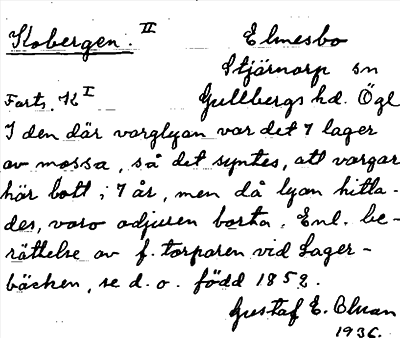 Kobergen. II
Elmesbo
Stjärnorp sn
Forts. K I
Gullbergs hd. Ögl
I den där varglyan var det 7 lager
av mossa, så det syntes, att vargar
här bott i 7 år, men då lyan hitta-
des, voro odjuren borta. Enl. be-
rättelse av f. torparen vid Lager-
bäcken, se d. o. född 1852.
Gustaf E. Oluan
1936.